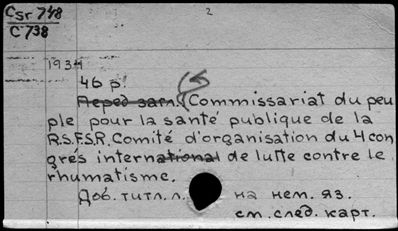 Csr 748
C 738
2
1934
46 p.
Перед загл. Commissariat du peu
ple pour la santé publique de la
R.S.F.S.R. Comité d'organisation du 4 con
grés international de lutte contre le
rhumatisme.
Доб. титл. л. на нем. яз.
см. след. карт.